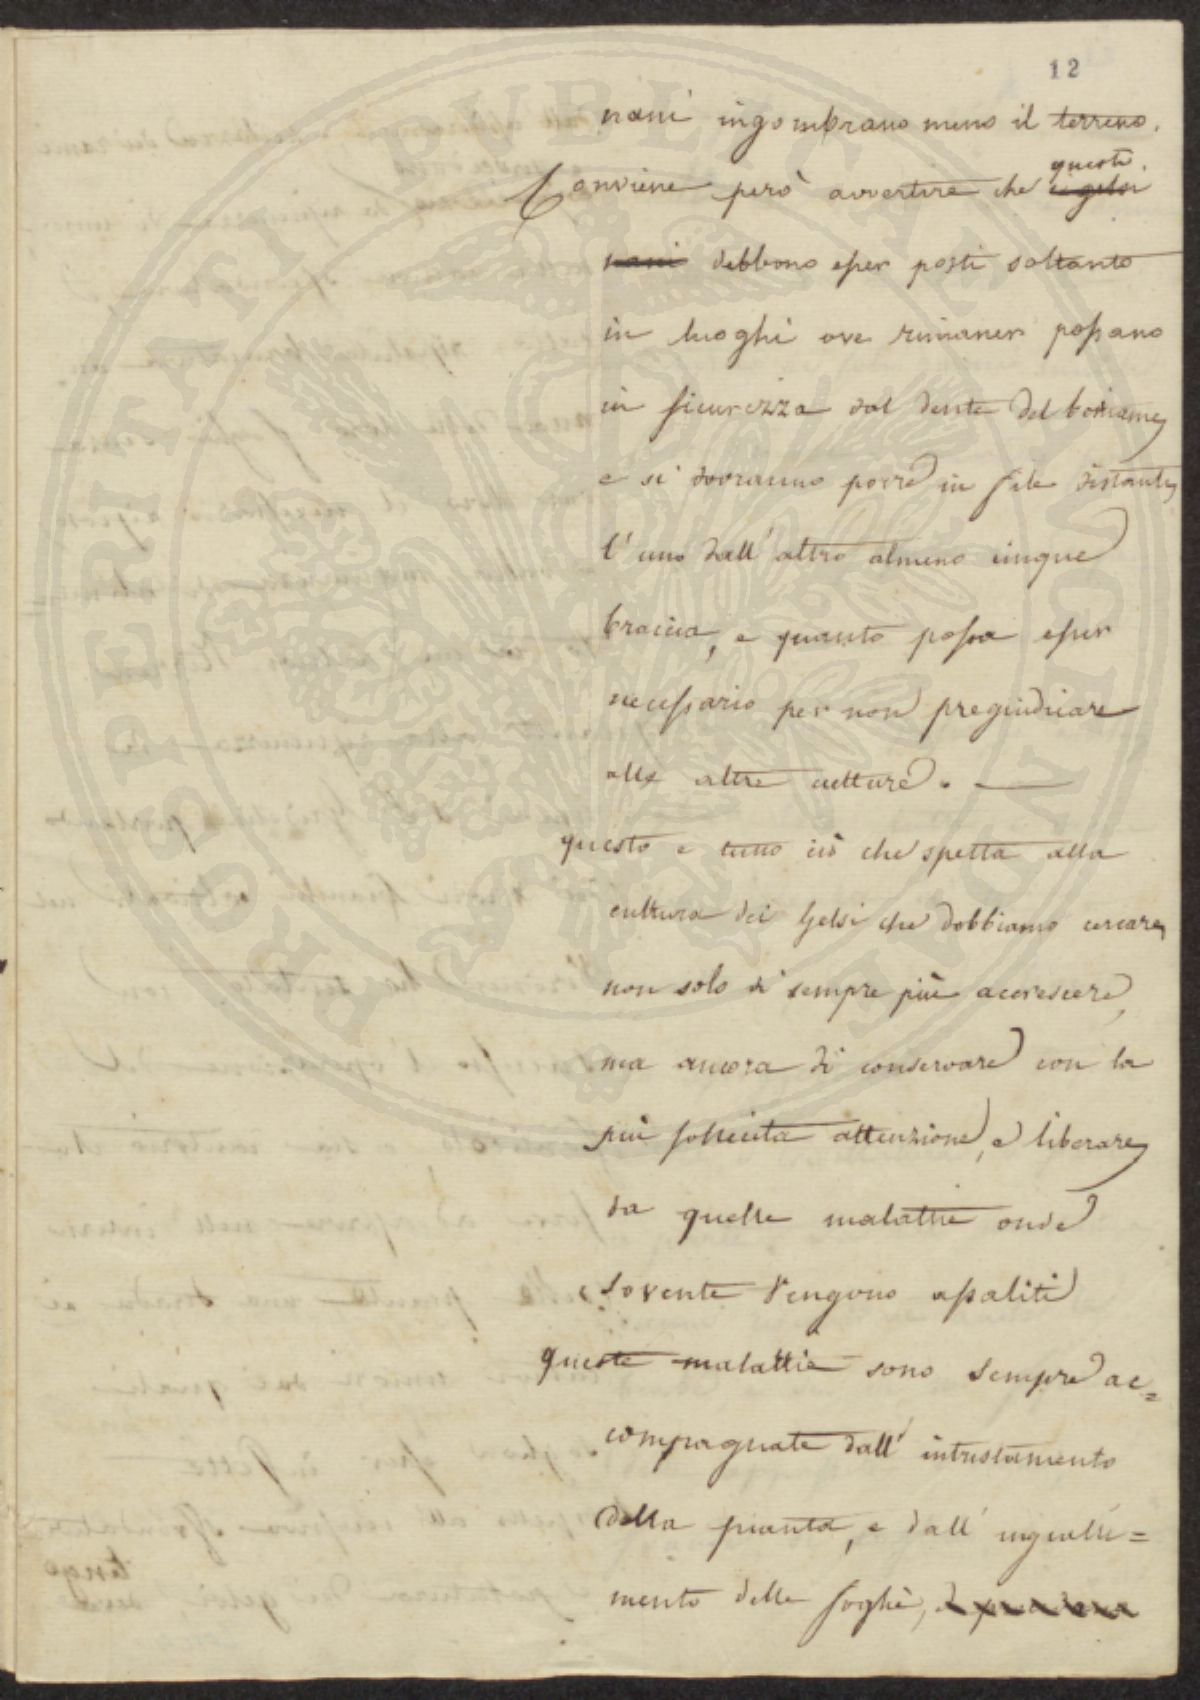 12
nani ingombrano meno il terreno.
questi.
Conviene però avvertire che i gelsi
nani debbono esser posti soltanto
in luoghi ove rimaner possano
in sicurezza dal dente del bestiame,
e si dovranno porre in file distanti
l'uno dall'altro almeno cinque
braccia, e quanto possa esser
necessario per non pregiudicare
alle altre culture. —
questo e tutto ciò che spetta alla
cultura dei Gelsi che dobbiamo cercare
non solo di sempre più accrescere,
ma ancora di conservare con la
più sollecita attenzione, e liberare
da quelle malattie onde
sovente vengono assaliti
queste malattie sono sempre ac=
compagnate dall'intristamento
della pianta, e dall'ingialli=
mento delle foglie,
PROSPERITATI PVBLICAE AVGENDAE